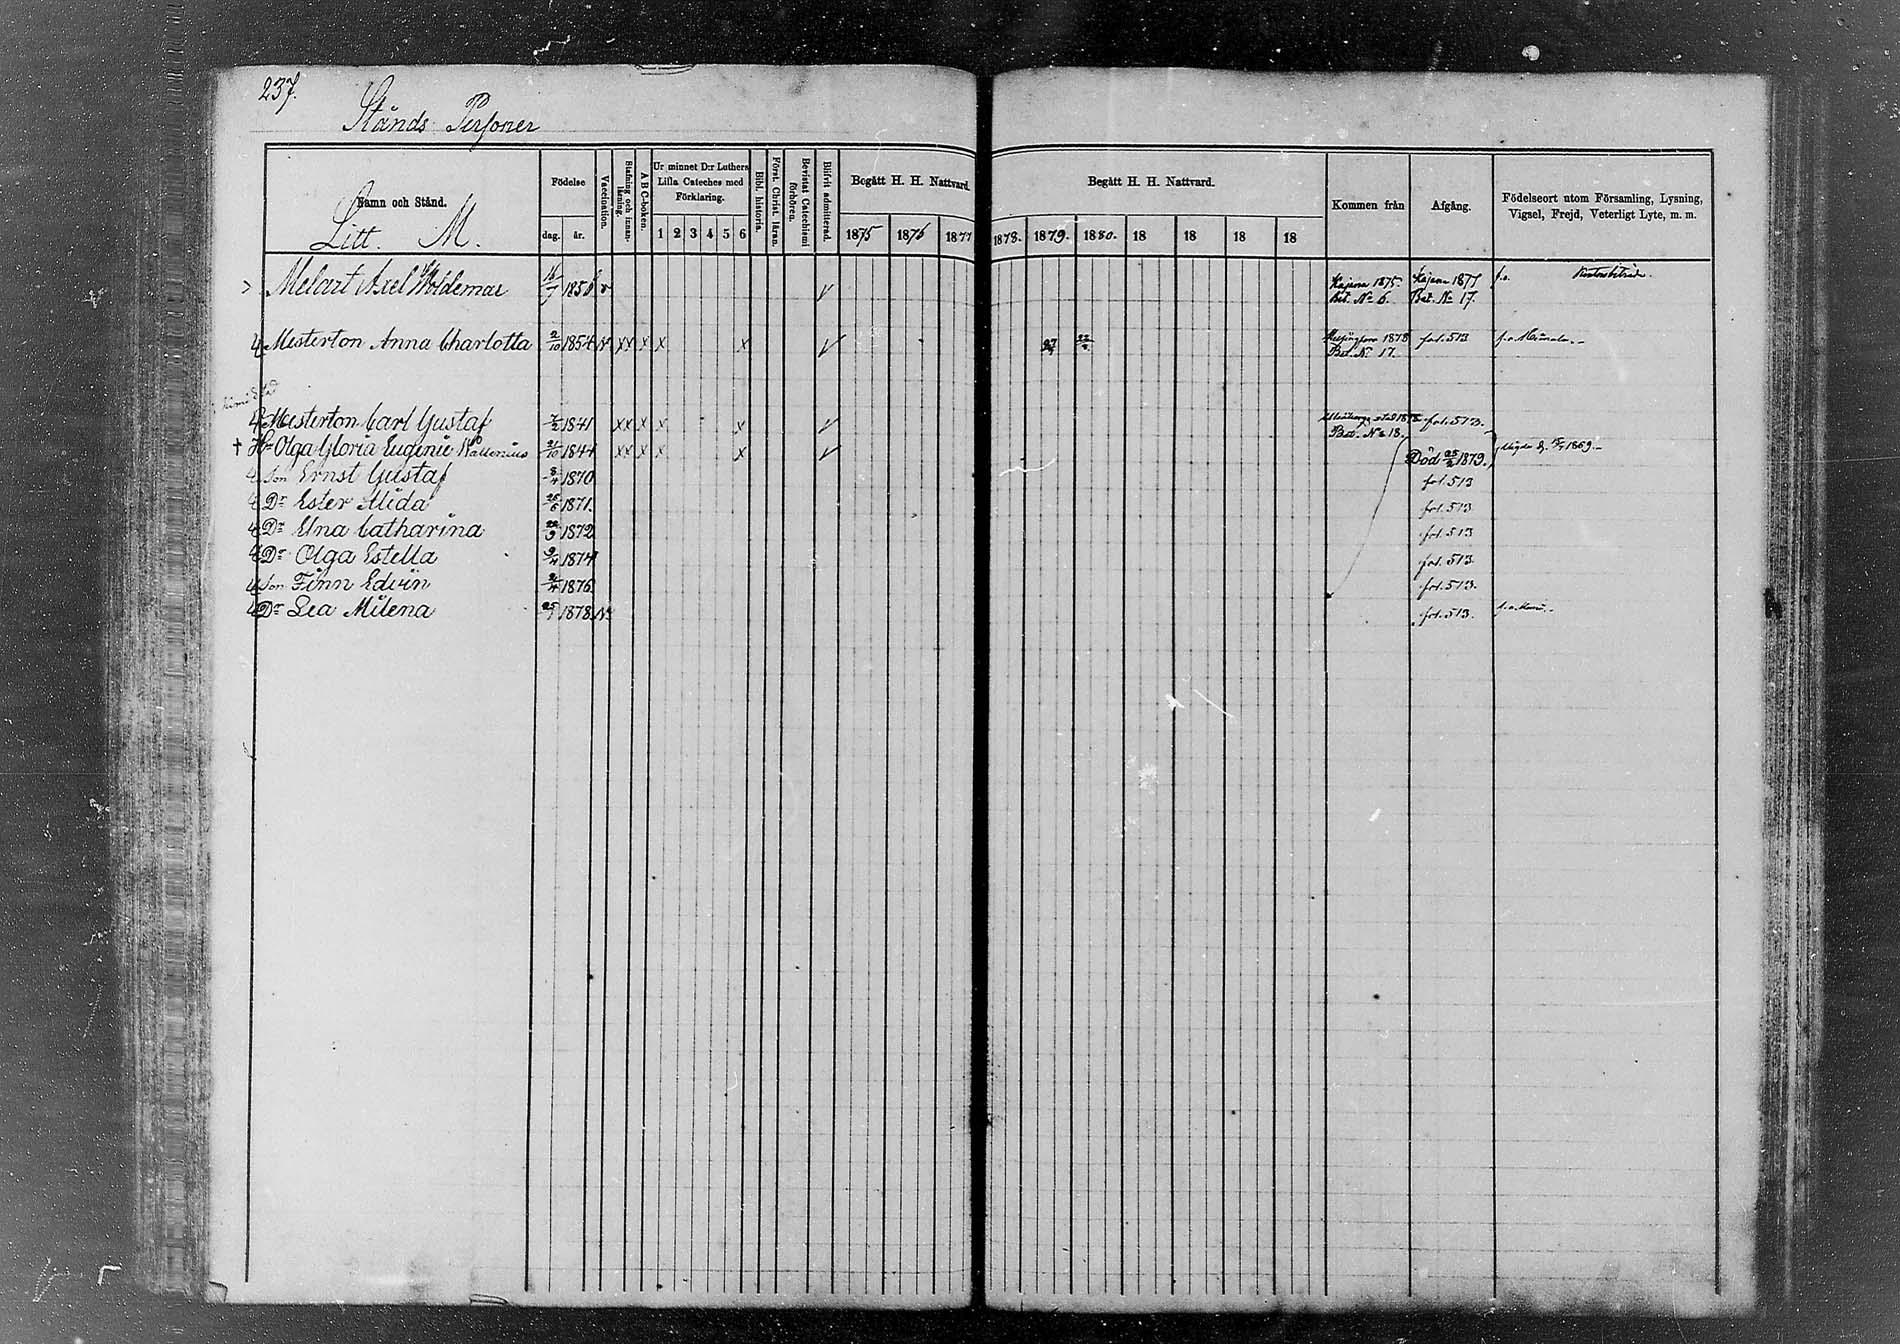 237.
Stånds Personer
Namn och Stånd.
Litt. M.
Födelse
dag. år.
Vaccination.
Stafning och innanläsning.
A B C-boken.
Ur minnet D:r Luthers Lilla Cateches med Förklaring.
1 2 3 4 5 6
Bibl. historia.
Först. Christ. läran.
Bevistat Catechismi förhören.
Blifvit admitterad.
Begått H. H. Nattvard.
1875 1876 1877
Begått H. H. Nattvard.
1878. 1879. 1880. 18 18 18 18
Kommen från
Afgång.
Födelseort utom Församling, Lysning, Vigsel, Frejd, Veterligt Lyte, m. m.
Melart Axel Woldemar 16/7 185 v V Kajana 1875. Bet. No 6. Kajana 1877 Bet. No 17.
Mesterton Anna Charlotta 2/10 1854 xx x x x V 22/ Helsingfors 1878 Bet. No 17. fol. 513
Mesterton Carl Gustaf 7/2 1841 xx x x x V Bet. No 18. fol. 513.
† Hu Olga Gloria Eugenie Wallenius 21/10 1844 xx x x x V Död 25/2 1879. 1869.
Son Ernst Gustaf 8/4 1870 fol. 513
Dr Ester Alida 25/5 1871. fol. 513
Dr Edna Catharina 22/9 1872 fol. 513
Dr Olga Estella 9/4 1874 fol. 513
Son Finn Edvin 1876 fol. 513.
Dr Lea Milena 25/1 1878 fol. 513.